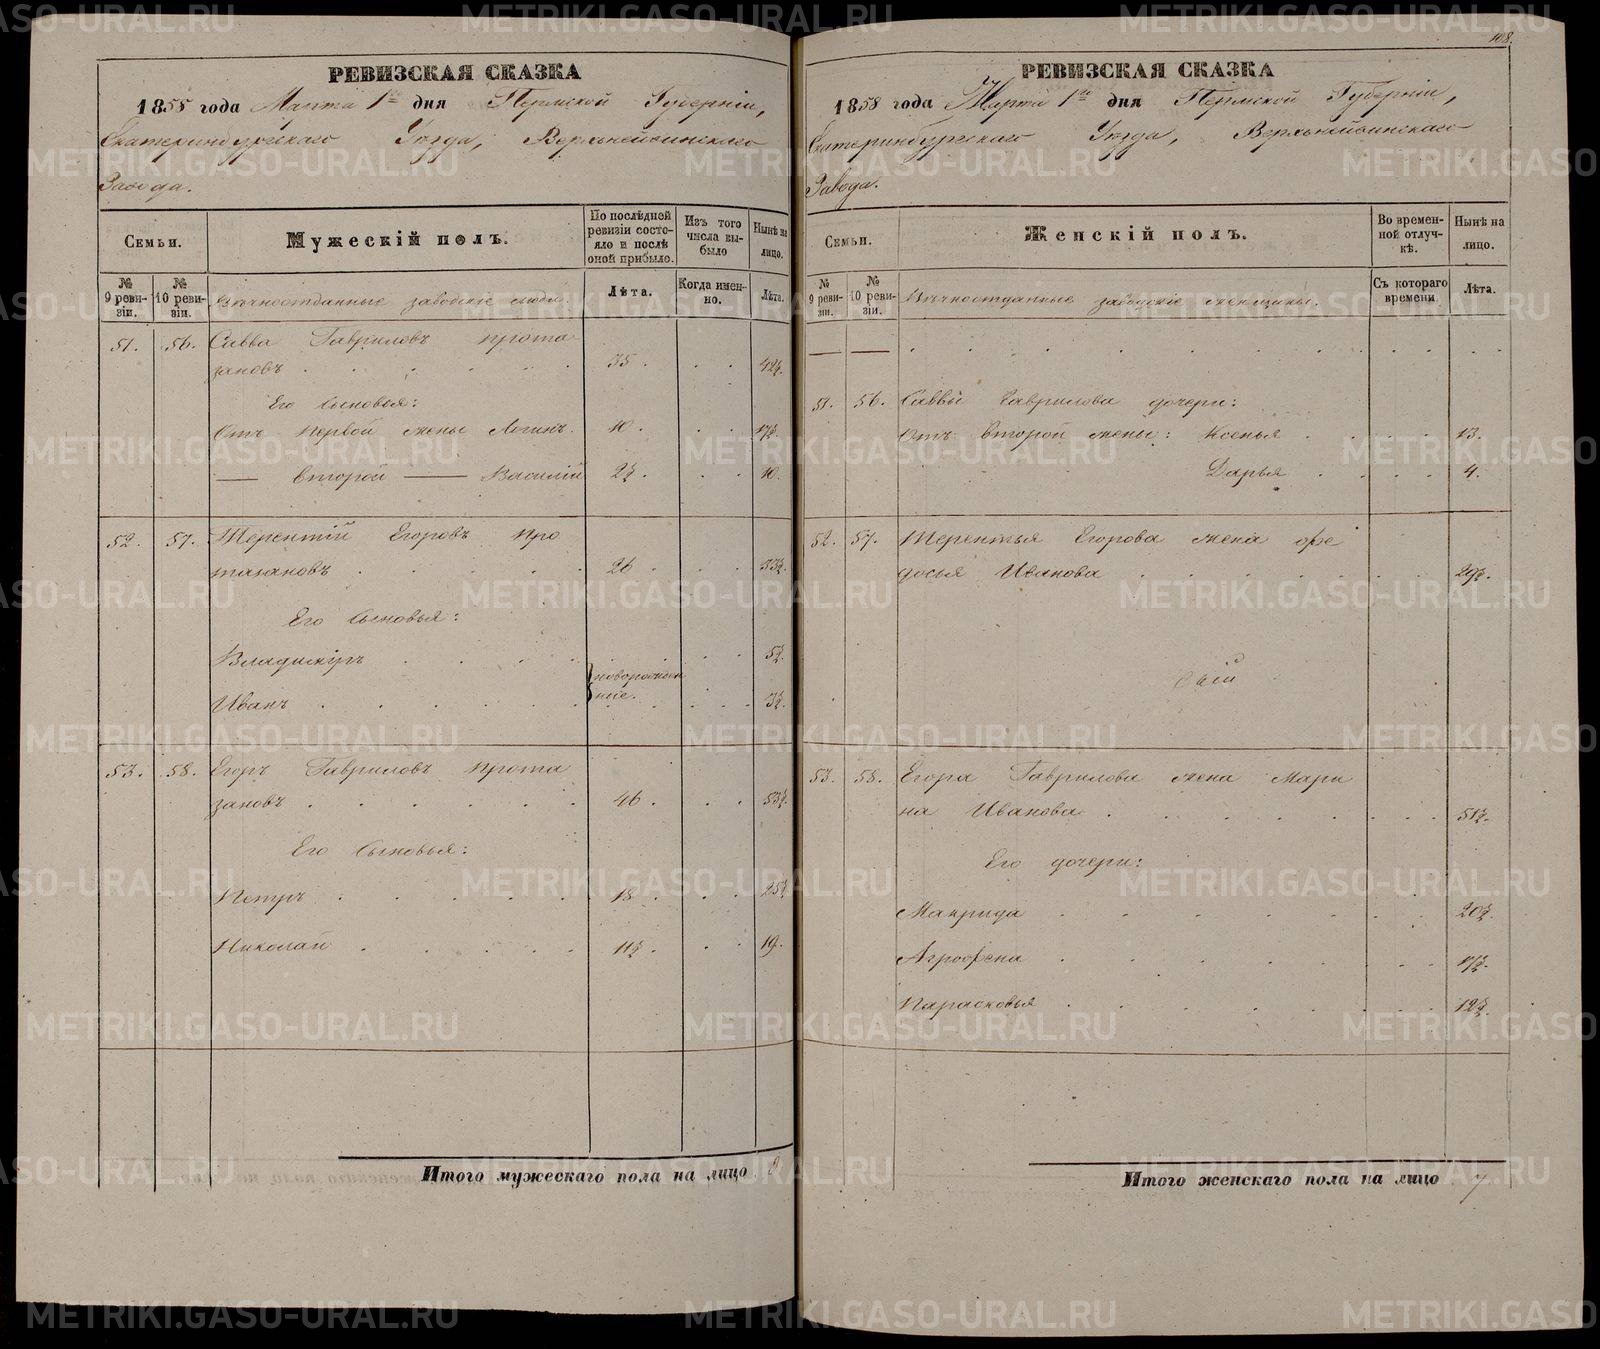 РЕВИЗСКАЯ СКАЗКА
1858 года Марта 1го дня Пермской Губерніи,
Екатеринбургскаго Уѣзда, Верхнейвинскаго
Завода.
Семьи.
Мужескій полъ.
По послѣдней ревизіи состояло и послѣ оной прибыло.
Изъ того числа выбыло
Нынѣ на лицо.
№ 9 ревизіи.
№ 10 ревизіи.
Вѣчноотданные заводскіе люди.
Лѣта.
Когда именно.
Лѣта.
51. 56. Савва Гавриловъ Прота
зановъ . . . . . . 35 . . . 42½.
Его сыновья:
Отъ первой жены Логинъ. 10 . . . 17½.
— второй — Василій 2½ . . . 10.
52. 57. Терентій Егоровъ Про
тазановъ . . . . . 26 . . . 33½.
Его сыновья:
Владиміръ . . . . . . 5½.
Иванъ . . . . . . 3½.
} новорожденные.
53. 58. Егоръ Гавриловъ Прота
зановъ . . . . . . 46 . . . 53½.
Его сыновья:
Петръ . . . . . 18 . . . 25½
Николай . . . . . 11½ . . . 19.
Итого мужескаго пола на лицо 8
108.
РЕВИЗСКАЯ СКАЗКА
1858 года Марта 1го дня Пермской Губерніи,
Екатеринбургскаго Уѣзда, Верхнейвинскаго
Завода.
Семьи.
Женскій полъ.
Во временной отлучкѣ.
Нынѣ на лицо.
№ 9 ревизіи.
№ 10 ревизіи.
Вѣчноотданные заводскіе женщины.
Съ котораго времени
Лѣта.
— —
51. 56. Саввы Гаврилова дочери:
Отъ второй жены: Ксенья . . . . 13.
Дарья . . . . 4.
52. 57. Терентья Егорова жена Ѳе
досья Иванова . . . . . . 29½.
53. 58. Егора Гаврилова жена Мари
на Иванова . . . . . . 51½.
Его дочери:
Макрида . . . . . . 20½.
Агрофена . . . . . . 17½.
Парасковья . . . . . . 12½.
Итого женскаго пола на лицо 7
METRIKI.GASO-URAL.RU